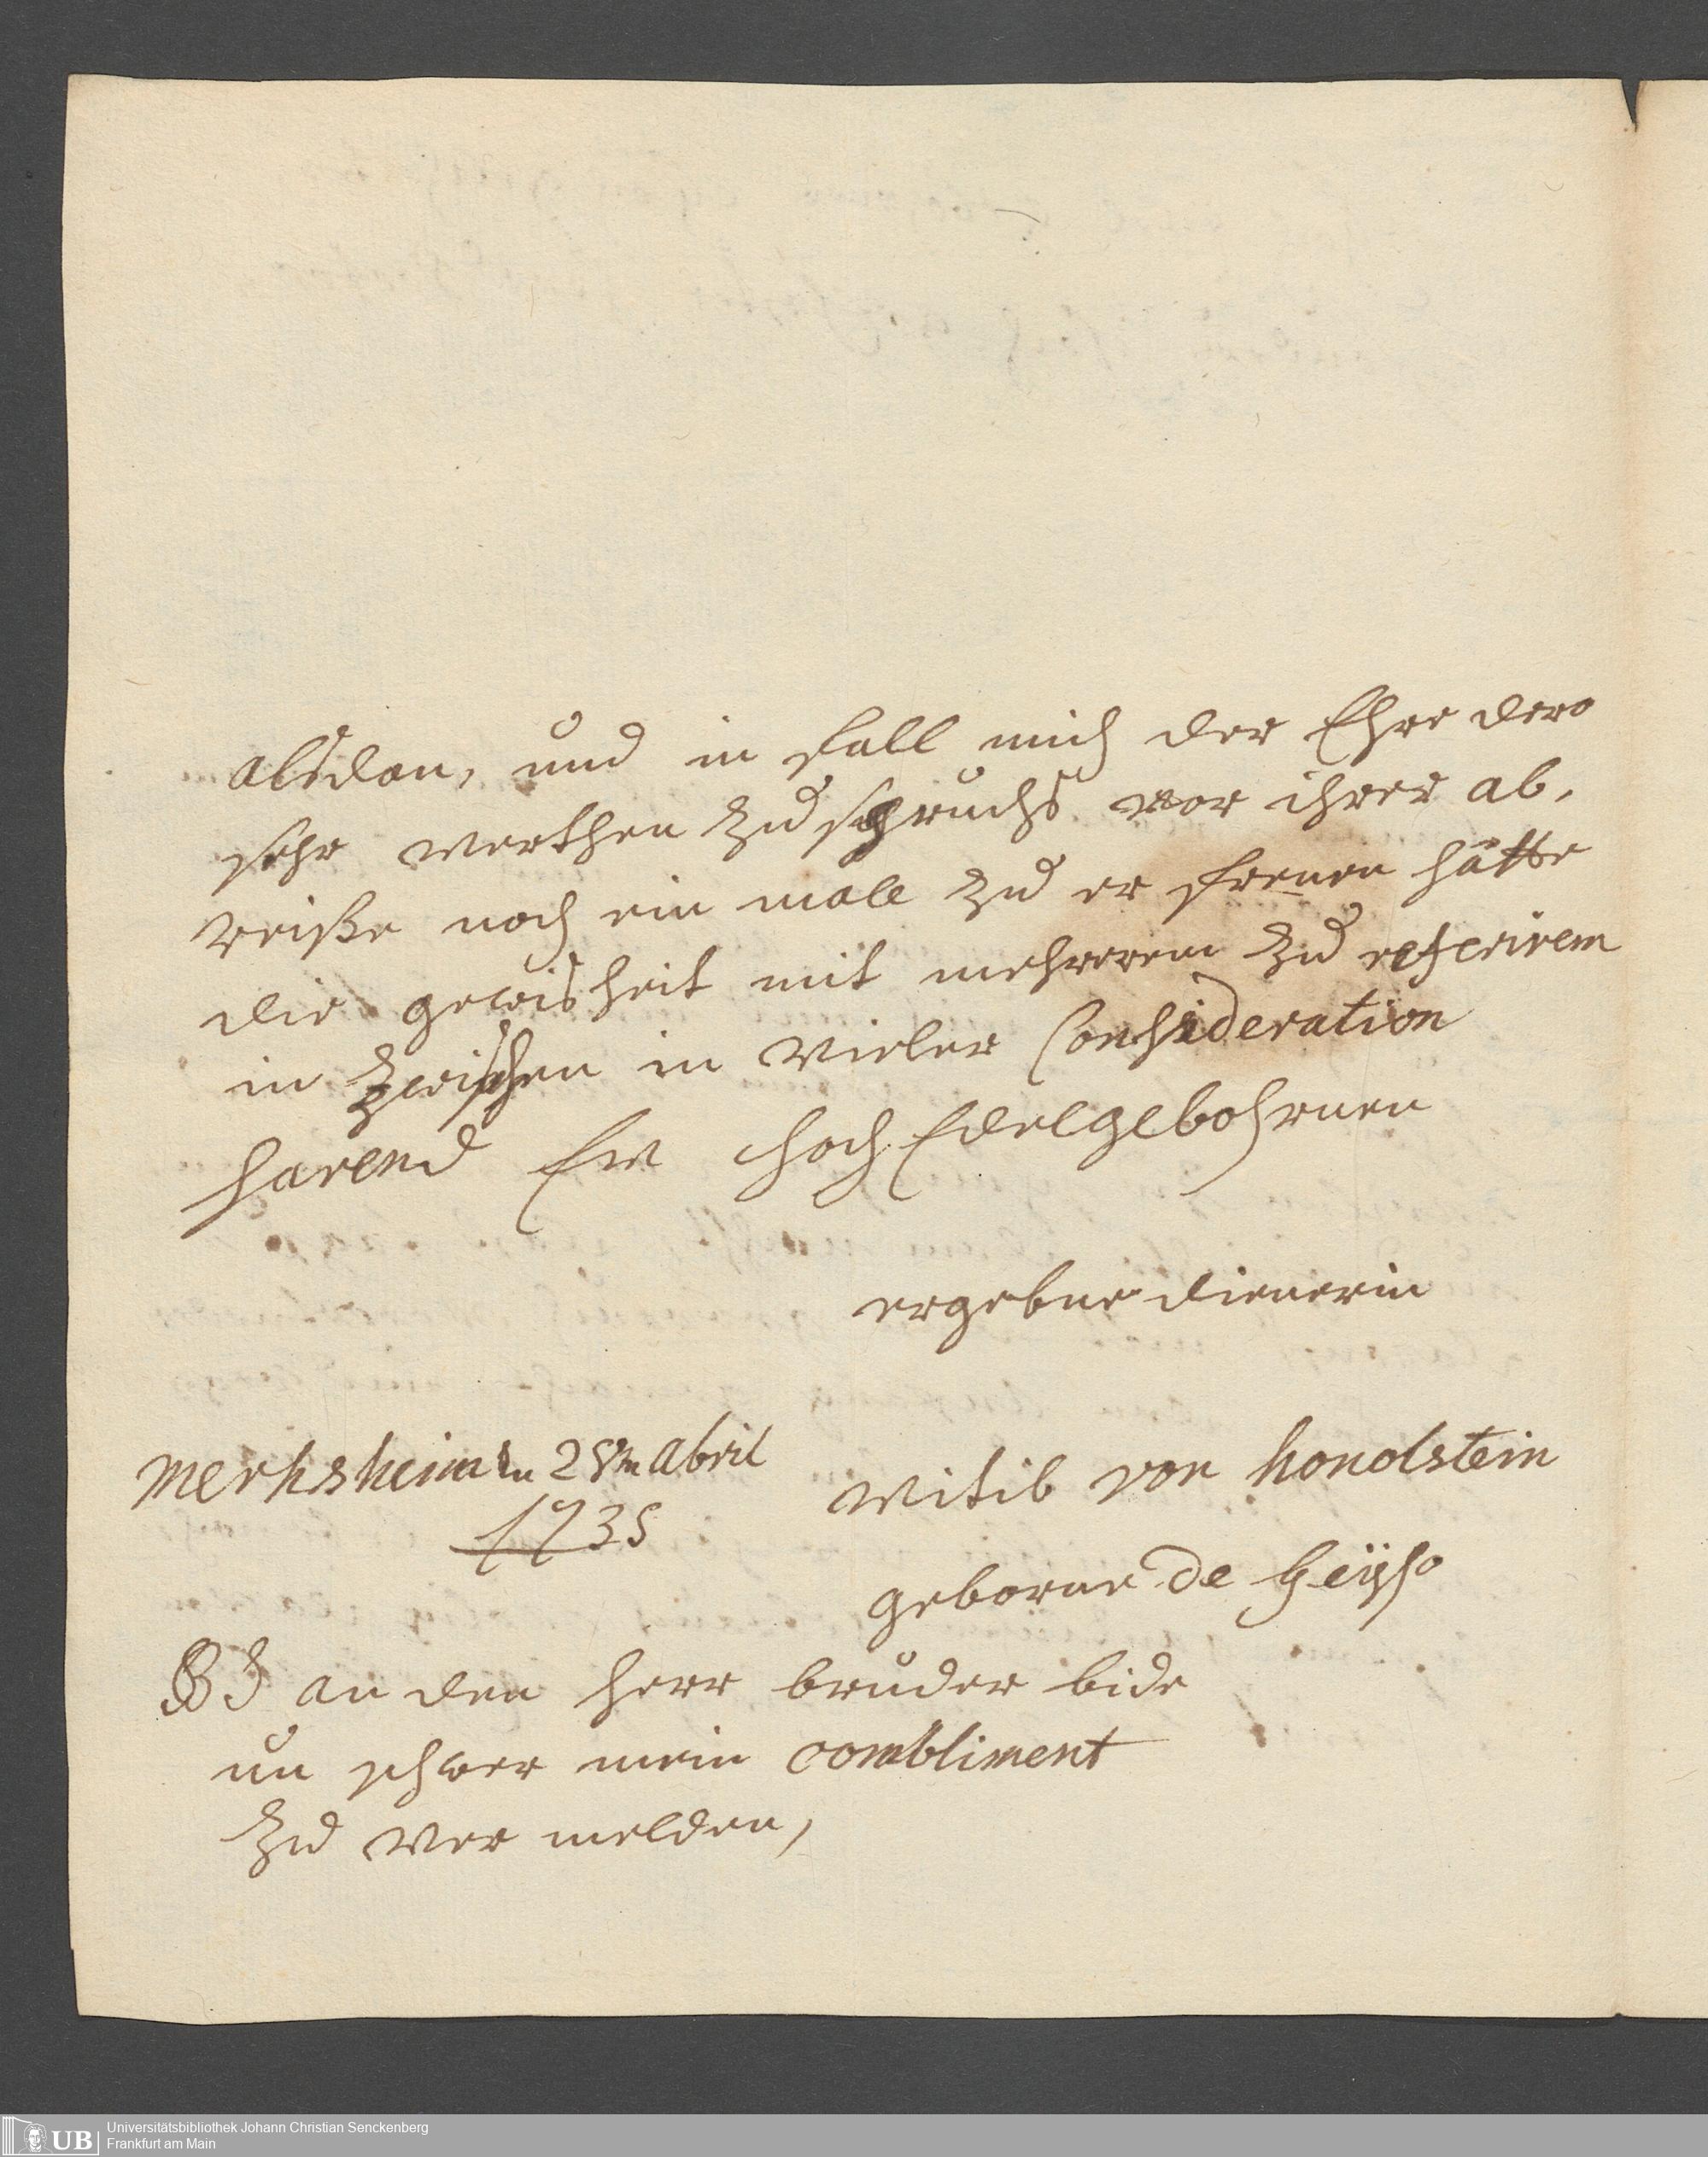 alsdan, und in fall mich der Ehre dero
sehr werthen zu spruchs vor ihrer ab,
reiße noch ein mall zu er freuen hätte
die gewisheit mit mehrerem zu referirem
in zwischen in vieler Consideration
harend Ew hoch Edelgebohrnen
ergebne dienerin
Merksheim dn 28tn abril
1735
witib von honolstein
geborne de Geÿso
PS an den herr bruder bide
un schwer mein combliment
zu ver melden,
UB Universitätsbibliothek Johann Christian Senckenberg
Frankfurt am Main